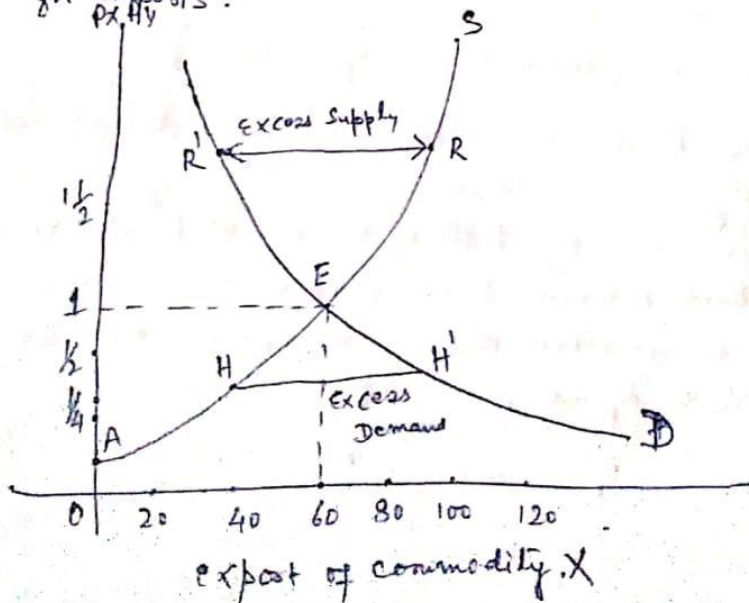 Px/Py
S
Excess Supply
R'
R
1 1/2
E
1
1/2
H
H'
Excess
Demand
1/4
A
D
0 20 40 60 80 100 120
export of commodity.X